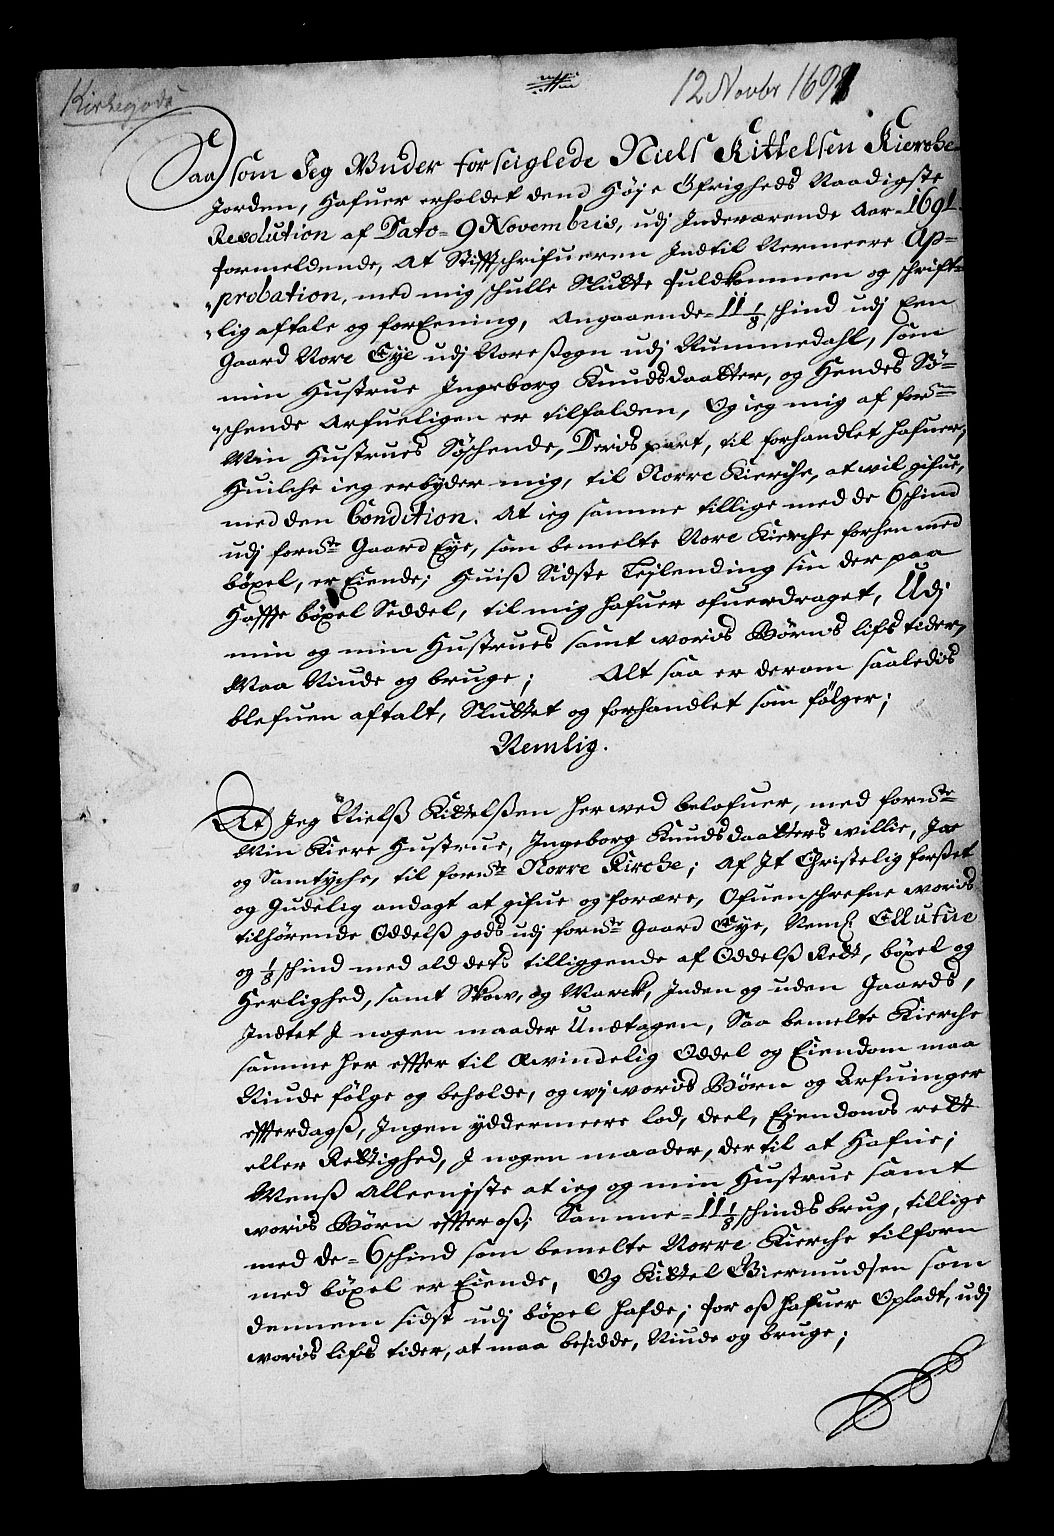 Kirkegods
12 Novbr 1691
Saasom Jeg Vnder forseiglede Niels Kittelsen Kierche
Jorden, Hafuer erholdet dend Høje Öfrigheds Naadigste
Resolution af Dato = 9 Novembris, udj Indeværende Aar = 1691
formeldende, At Stifftschrifueren Indtil Nermeere Ap=
probation, med mig schulle Slutte fuldkommen og schrift=
lig aftale og forEening, Angaaende = 11 1/8 schind udj Een
Gaard Nore Eye udj Noresogn udj Nummedahl, som
min Hustrue Ingeborg Knudsdaatter, og Hendes Sö=
schende Arfueligen er tilfalden, Og ieg mig af forne
Min Hustrues Søschende, Deris part, til forhandlet hafuer,
Huilche ieg erbyder mig, til Norre Kierche, at wil gifue,
med den Condition. At ieg samme tillige med de 6 schind
udj fornte Gaard Eye, som bemelte Nore Kierche forhen med
böxel, er Eiende; Huiß Sidste Leylending sin der paa
Haffte böxel Seddel, til mig hafuer ofuerdraget, Udj
min og min Hustrues samt woris Börns lifs tider,
Maa Niude og bruge; Alt saa er derom saaledis
blefuen aftalt, Sluttet og forhandlet som følger;
Nemlig.
At Jeg Nielß Kittelßen herwed belofuer, med fornte
Min Kiere Hustrue, Ingeborg Knudsdaatters willie, Jae
og Samtyche, til fornte Norre Kirche; Af It Christelig forsæt
og Gudelig andagt at gifue og forære, Ofuenschrefne woris
tilhørende Oddelß gods udj fornte Gaard Eye, Neml. Ellufue
og 1/8 schind med ald dets tilliggende af Oddelß Rett, böxel og
Herlighed, samt Skow, og Marck, Inden og uden Gaards,
Indtet I nogen maader Undtagen, Saa bemelte Kierche
samme her effter til Æwindelig Oddel og Eiendom maa
Niude følge og beholde, og wj woris Börn og Arfuinger
effterdags, Ingen yddermeere lod, deel, Eiendoms rett
eller Rettighed, I nogen maader, der til at Hafue;
Menß Alleeniste at ieg og min Hustrue samt
woris Börn effter oß, Samme = 11 1/8 schinds brug, tillige
med de = 6 schind som bemelte Norre Kierche tilforn
med böxel er Eiende, Og Kittel Giermudsen som
dennem sidst udj böxel hafde; for oß hafuer Opladt, udj
woris lifs tider, at maa besidde, Niude og bruge;